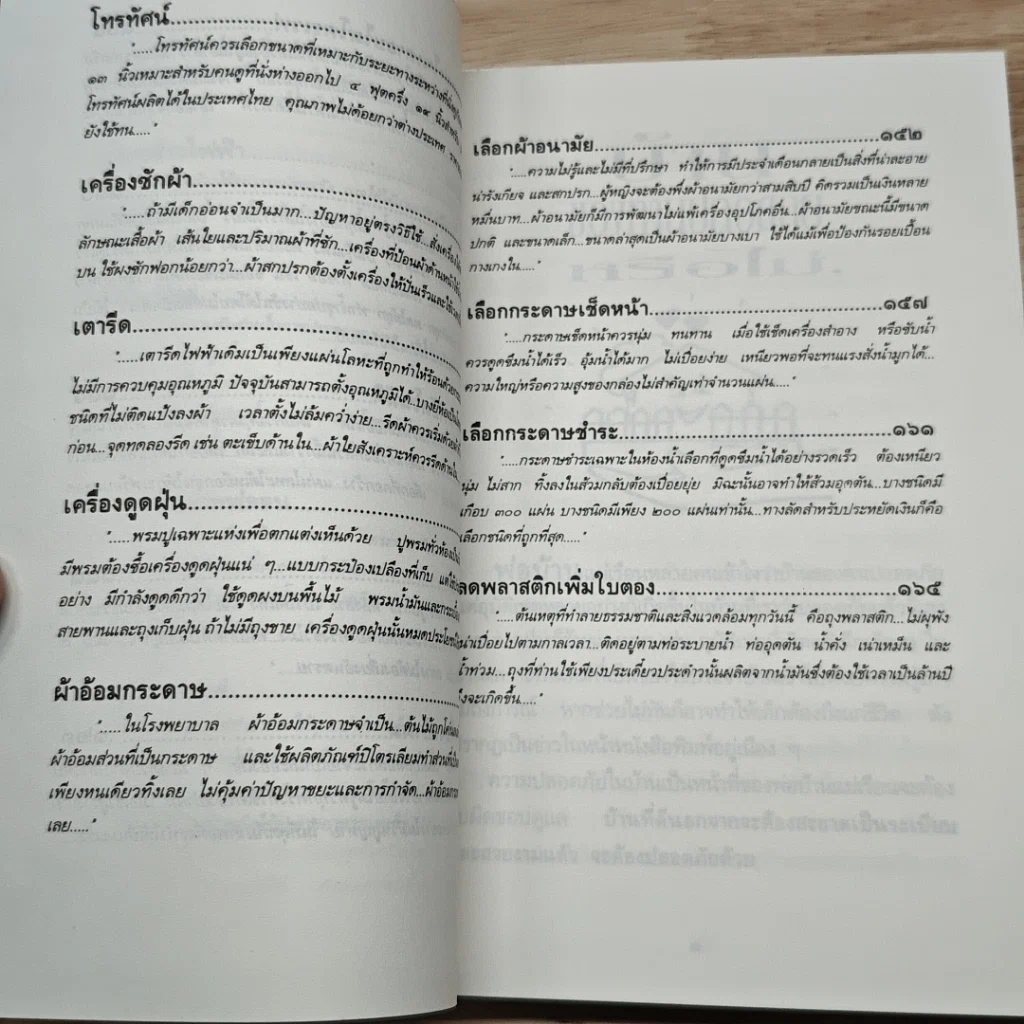 โทรทัศน์
".....โทรทัศน์ควรเลือกขนาดที่เหมาะกับระยะทางระหว่างที่นั่งดู
๑๓ นิ้วเหมาะสำหรับคนดูที่นั่งห่างออกไป ๔ ฟุตครึ่ง ๑๙ นิ้ว
โทรทัศน์ผลิตได้ในประเทศไทย คุณภาพไม่ด้อยกว่าต่างประเทศ
ยังใช้ทน....."
เครื่องซักผ้า
".....ถ้ามีเด็กอ่อนจำเป็นมาก...ปัญหาอยู่ตรงวิธีใช้...สั่งเครื่องให้
ลักษณะเสื้อผ้า เส้นใยและปริมาณผ้าที่ซัก...เครื่องที่ป้อนผ้าด้านหน้า
บน ใช้ผงซักฟอกน้อยกว่า...ผ้าสกปรกต้องตั้งเครื่องให้ปั่นเร็วและใช้
เตารีด
".....เตารีดไฟฟ้าเดิมเป็นเพียงแผ่นโลหะที่ถูกทำให้ร้อนด้วย
ไม่มีการควบคุมอุณหภูมิ ปัจจุบันสามารถตั้งอุณหภูมิได้..บางยี่ห้อ
ชนิดที่ไม่ติดแป้งลงผ้า เวลาตั้งไม่ล้มคว่ำง่าย...รีดผ้าควรเริ่มด้วย
ก่อน...จุดทดลองรีด เช่น ตะเข็บด้านใน...ผ้าใยสังเคราะห์ควรรีดด้าน
เครื่องดูดฝุ่น
".....พรมปูเฉพาะแห่งเพื่อตกแต่งเห็นด้วย ปูพรมทั่วห้อง
มีพรมต้องซื้อเครื่องดูดฝุ่นแน่ ๆ...แบบกระป๋องเปลืองที่เก็บ แต่
อย่าง มีกำลังดูดดีกว่า ใช้ดูดผงบนพื้นไม้ พรมน้ำมันและ
สายพานและถุงเก็บฝุ่น ถ้าไม่มีถุงขาย เครื่องดูดฝุ่นนั้นหมดประโยชน์
ผ้าอ้อมกระดาษ
".....ในโรงพยาบาล ผ้าอ้อมกระดาษจำเป็น...ต้นไม้ถูกโค่น
ผ้าอ้อมส่วนที่เป็นกระดาษ และใช้ผลิตภัณฑ์ปิโตรเลียมทำส่วนที่
เพียงหนเดียวทิ้งเลย ไม่คุ้มค่าปัญหาขยะและการกำจัด...ผ้าอ้อม
เลย....."
เลือกผ้าอนามัย ๑๕๒
".....ความไม่รู้และไม่มีที่ปรึกษา ทำให้การมีประจำเดือนกลายเป็นสิ่งที่น่าละอาย
น่ารังเกียจ และสกปรก...ผู้หญิงจะต้องพึ่งผ้าอนามัยกว่าสามสิบปี คิดรวมเป็นเงินหลาย
หมื่นบาท...ผ้าอนามัยก็มีการพัฒนาไม่แพ้เครื่องอุปโภคอื่น...ผ้าอนามัยขณะนี้มีขนาด
ปกติ และขนาดเล็ก...ขนาดล่าสุดเป็นผ้าอนามัยบางเบา ใช้ได้แม้เพื่อป้องกันรอยเปื้อน
กางเกงใน....."
เลือกกระดาษเช็ดหน้า ๑๕๗
".....กระดาษเช็ดหน้าควรนุ่ม ทนทาน เมื่อใช้เช็ดเครื่องสำอาง หรือซับน้ำ
ควรดูดซึมน้ำได้เร็ว อุ้มน้ำได้มาก ไม่เปื่อยง่าย เหนียวพอที่จะทนแรงสั่งน้ำมูกได้...
ความใหญ่หรือความสูงของกล่องไม่สำคัญเท่าจำนวนแผ่น....."
เลือกกระดาษชำระ ๑๖๑
".....กระดาษชำระเฉพาะในห้องน้ำเลือกที่ดูดซึมน้ำได้อย่างรวดเร็ว ต้องเหนียว
นุ่ม ไม่สาก ทิ้งลงในส้วมกลับต้องเปื่อยยุ่ย มิฉะนั้นอาจทำให้ส้วมอุดตัน...บางชนิดมี
เกือบ ๓๐๐ แผ่น บางชนิดมีเพียง ๒๐๐ แผ่นเท่านั้น...ทางลัดสำหรับประหยัดเงินก็คือ
เลือกชนิดที่ถูกที่สุด....."
ลดพลาสติกเพิ่มใบตอง ๑๖๕
".....ต้นเหตุที่ทำลายธรรมชาติและสิ่งแวดล้อมทุกวันนี้ คือถุงพลาสติก...ไม่ผุพัง
เน่าเปื่อยไปตามกาลเวลา...ติดอยู่ตามท่อระบายน้ำ ท่ออุดตัน น้ำคั่ง เน่าเหม็น และ
น้ำท่วม...ถุงที่ท่านใช้เพียงประเดี๋ยวประด๋าวนั้นผลิตจากน้ำมันซึ่งต้องใช้เวลาเป็นล้านปี
จึงจะเกิดขึ้น....."